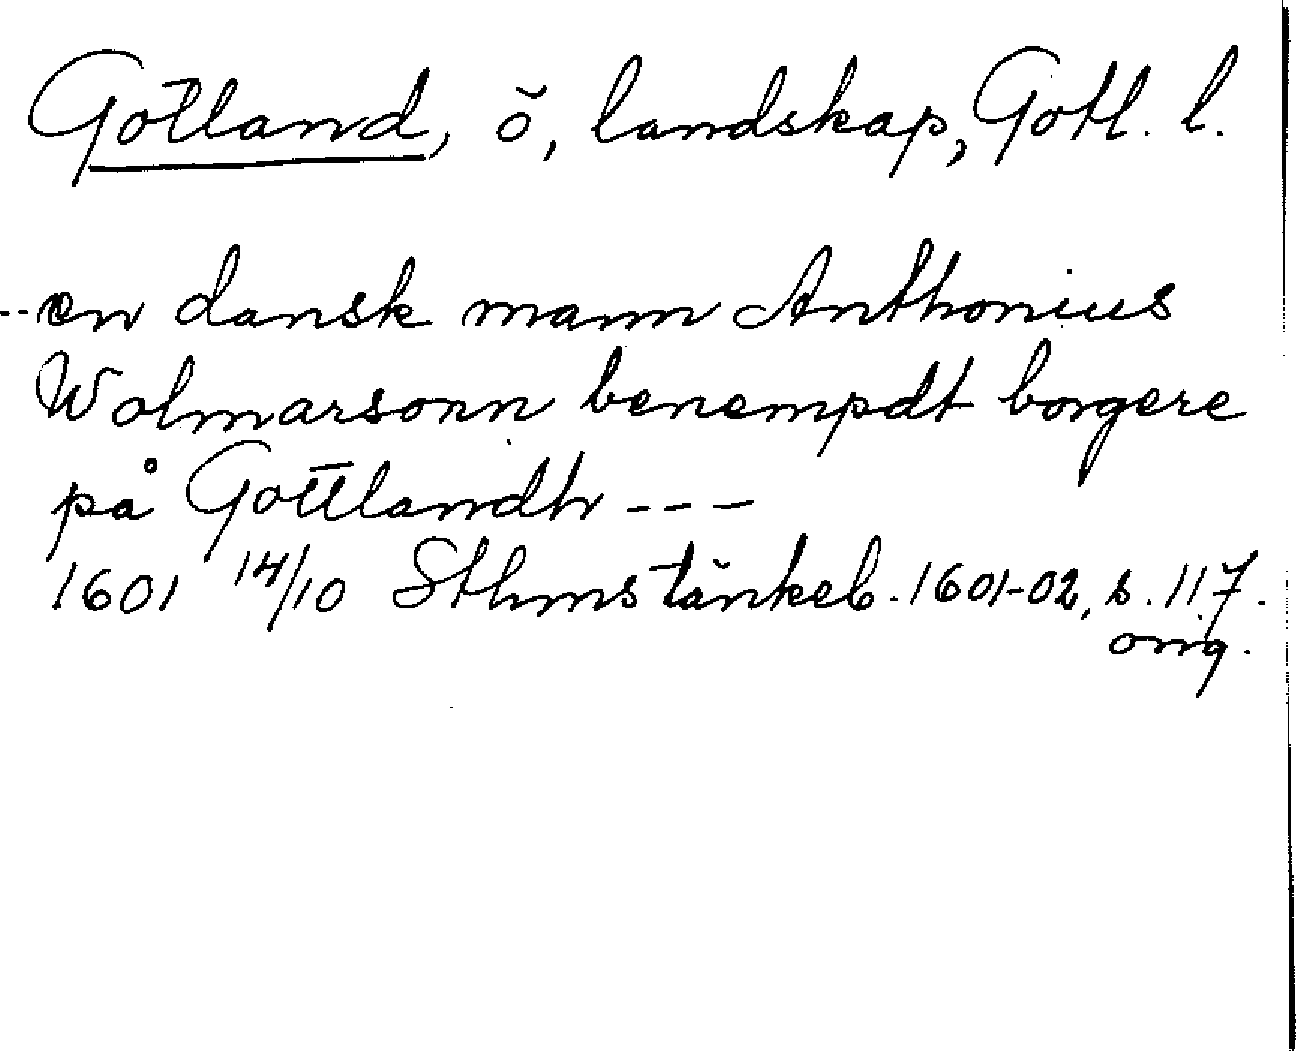 Gotland, ö, landskap, Gotl. l.
--en dansk mann Anthonius
Wolmarsonn benempdt borgere
på Gottlandh ---
1601 14/10 Sthms tänkeb. 1601-02, s. 117.
orig.